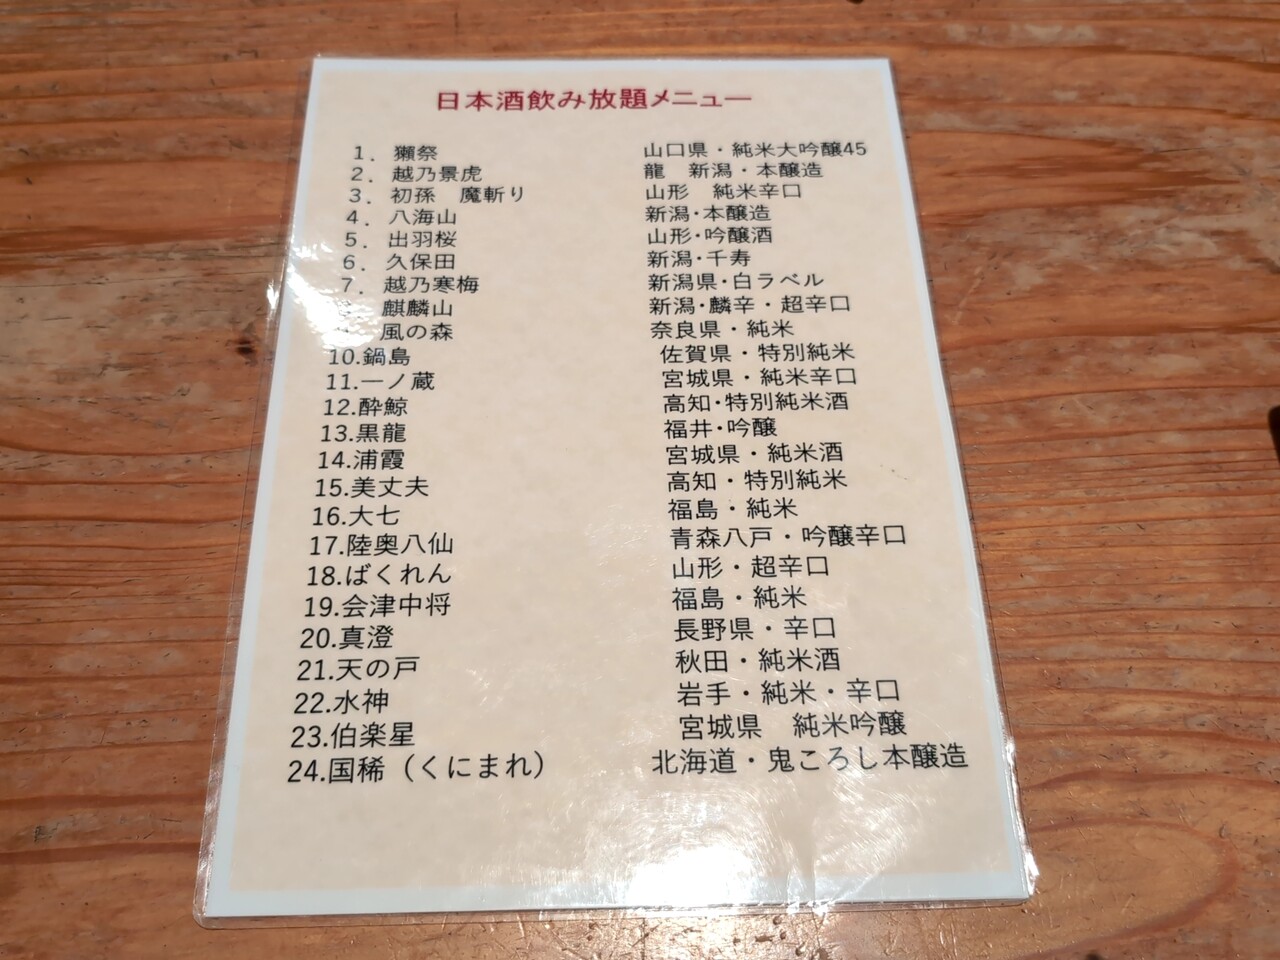 日本酒飲み放題メニュー
1． 獺祭 山口県・純米大吟醸45
2． 越乃景虎 龍 新潟・本醸造
3． 初孫 魔斬り 山形 純米辛口
4． 八海山 新潟・本醸造
5． 出羽桜 山形・吟醸酒
6． 久保田 新潟・千寿
7． 越乃寒梅 新潟県・白ラベル
麒麟山 新潟・麟辛・超辛口
風の森 奈良県・純米
10.鍋島 佐賀県・特別純米
11.一ノ蔵 宮城県・純米辛口
12.酔鯨 高知・特別純米酒
13.黒龍 福井・吟醸
14.浦霞 宮城県・純米酒
15.美丈夫 高知・特別純米
16.大七 福島・純米
17.陸奥八仙 青森八戸・吟醸辛口
18.ばくれん 山形・超辛口
19.会津中将 福島・純米
20.真澄 長野県・辛口
21.天の戸 秋田・純米酒
22.水神 岩手・純米・辛口
23.伯楽星 宮城県 純米吟醸
24.国稀（くにまれ） 北海道・鬼ころし本醸造